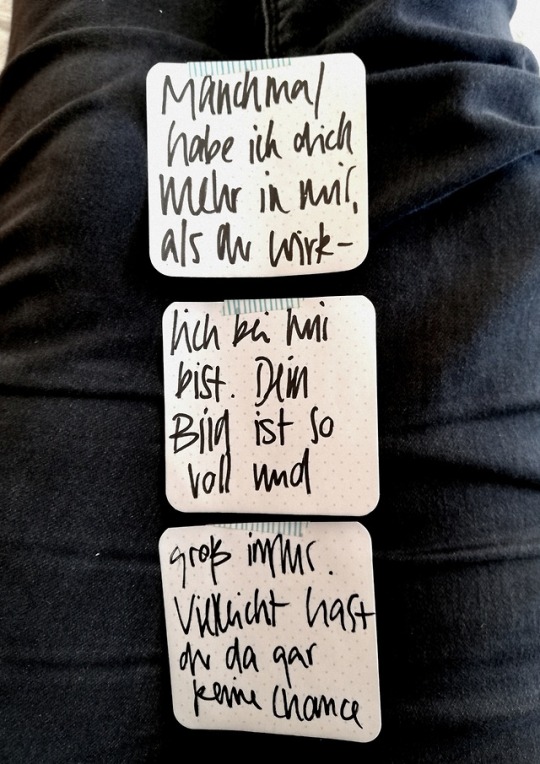 Manchmal
habe ich dich
mehr in mir,
als du wirk-
lich bei mir
bist. Dein
Bild ist so
voll und
groß immer.
Vielleicht hast
du da gar
keine Chance